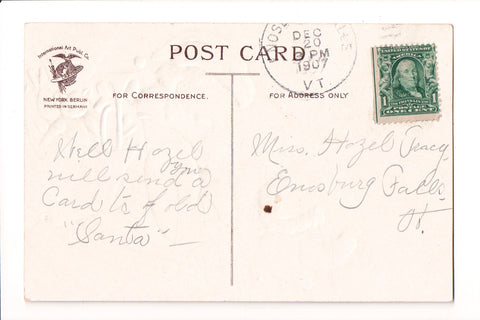 International Art Publ. Co.
NEW YORK BERLIN
PRINTED IN GERMANY
POST CARD.
DEC
20
PM
1907
VT.
UNITED STATES OF AMERICA
1 1
ONE CENT
FOR CORRESPONDENCE.
FOR ADDRESS ONLY
Well Hazel
you
will send a
Card to old
"Santa" —
Miss. Hazel
Enosburg Falls
Vt.